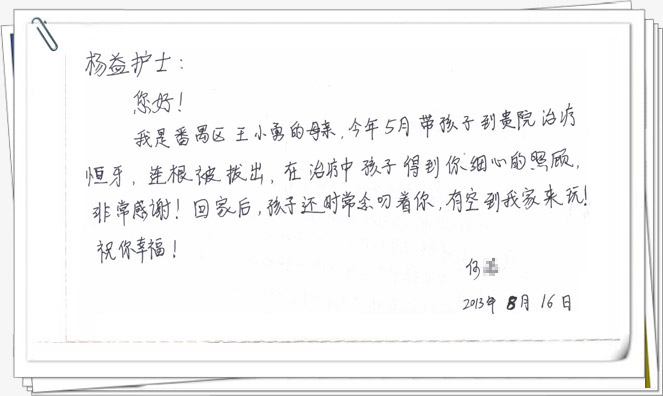 杨益护士：
您好！
我是番禺区王小勇的母亲，今年5月带孩子到贵院治疗
恒牙，连根被拔出，在治疗中孩子得到你细心的照顾，
非常感谢！回家后，孩子还时常念叨着你，有空到我家来玩！
祝你幸福！
何
2013年8月16日